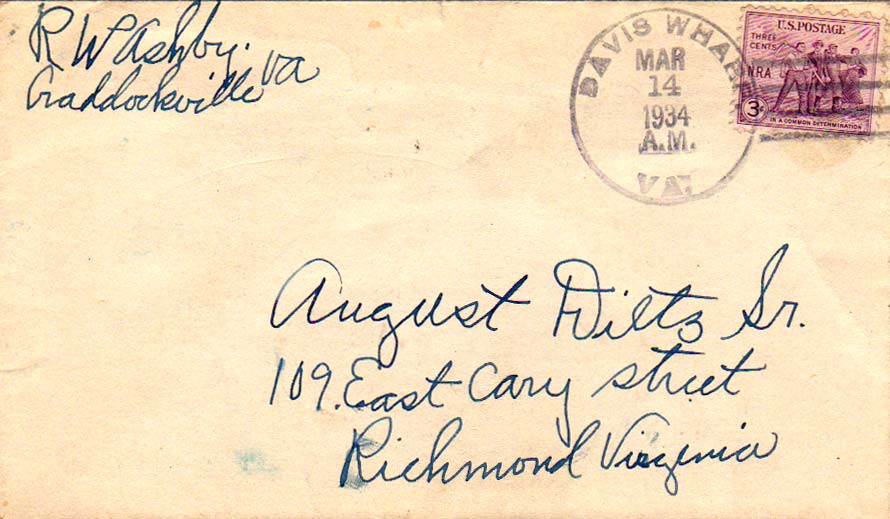 R W Ashby.
Craddockville Va
DAVIS WHARF
MAR
14
1934
A.M.
VA.
U.S. POSTAGE
THREE
CENTS
NRA
3¢
IN A COMMON DETERMINATION
August Diltz Sr.
109. East Cary street
Richmond Virginia